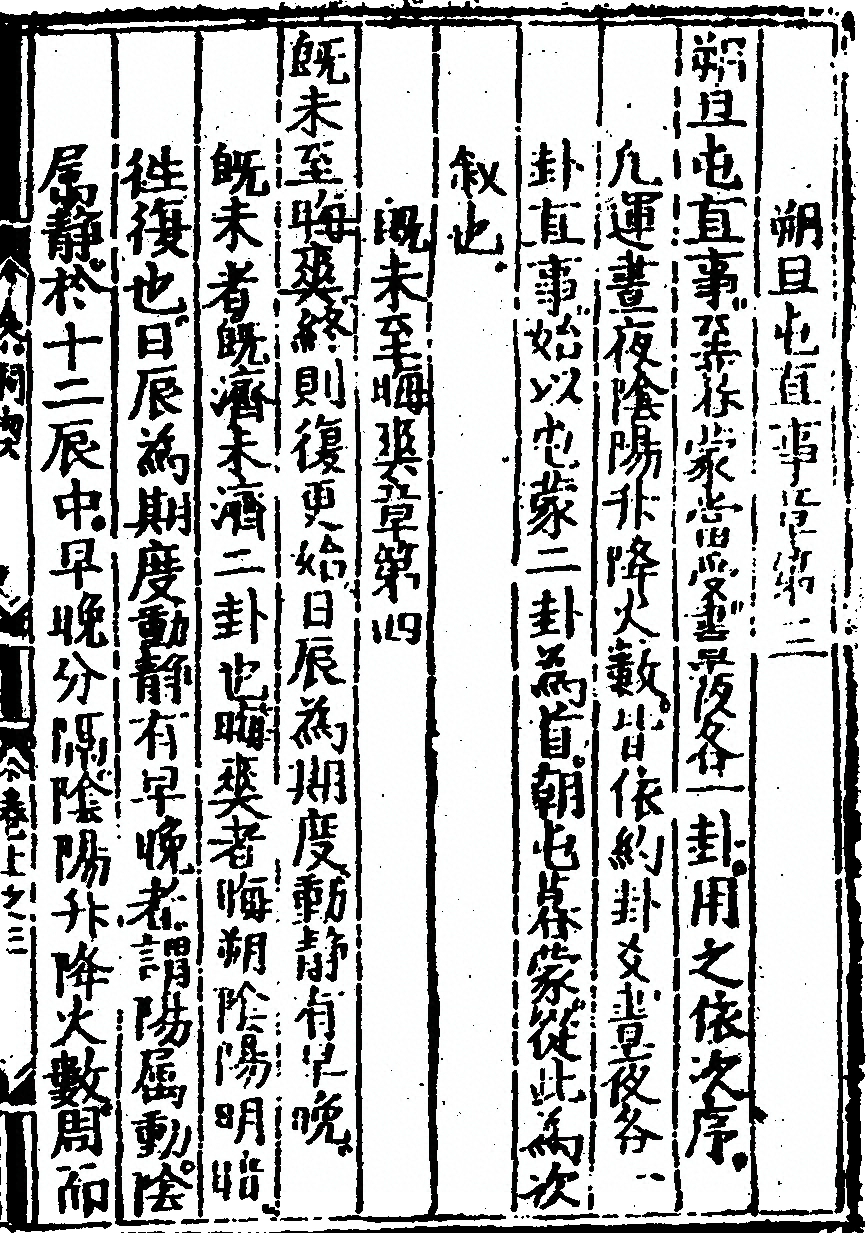 朔旦屯直事章第三
朔旦屯直事暮夜蒙當受晝夜各一卦用之依次序
凢運晝夜隂陽升降火數皆依約卦爻晝夜各一
卦直事始以屯蒙二卦為首朝屯暮蒙從此為次
叙也
既未至晦爽章第四
既未至晦爽終則復更始日辰為期度動静有早晚
既未者既濟未濟二卦也晦爽者晦朔隂陽明暗
徃復也日辰為期度動静有早晚者謂陽屬動隂
屬静於十二辰中早晚分隔隂陽升降火數周而
卷上之三